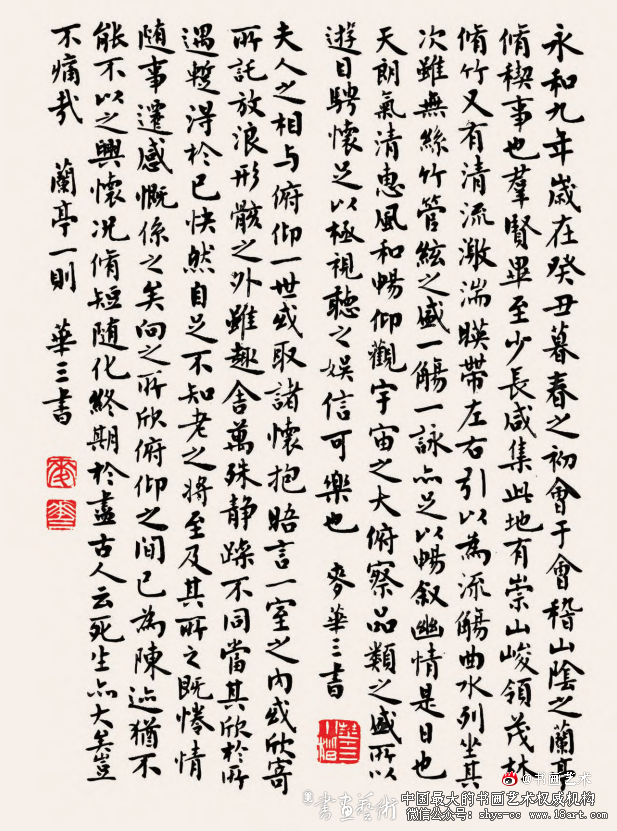 永和九年歲在癸丑暮春之初會于會稽山陰之蘭亭
脩稧事也羣賢畢至少長咸集此地有崇山峻領茂林
脩竹又有清流激湍暎帶左右引以為流觴曲水列坐其
次雖無絲竹管絃之盛一觴一詠亦足以暢叙幽情是日也
天朗氣清惠風和暢仰觀宇宙之大俯察品類之盛所以
遊目騁懷足以極視聽之娛信可樂也 麥華三書
夫人之相与俯仰一世或取諸懷抱晤言一室之內或欣寄
所託放浪形骸之外雖趣舍萬殊静躁不同當其欣於所
遇蹔得於己快然自足不知老之将至及其所之既惓情
随事遷感慨係之矣向之所欣俯仰之間已為陳迹猶不
能不以之興懷况脩短随化終期於盡古人云死生亦大矣豈
不痛哉 蘭亭一則 華三書
@书画艺术
書畫藝術
中国最大的书画艺术权威机构
微信公众号：shys-cc www.18art.com